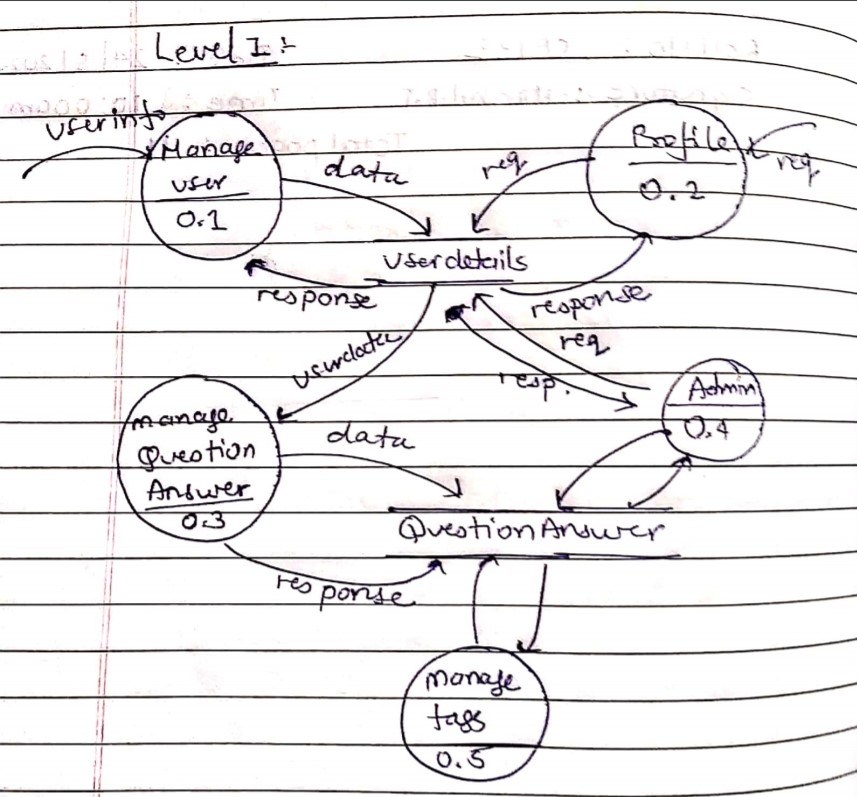 Level 1 :-
userinfo
Manage
user
0.1
data
req
Profile
0.2
req
userdetails
response
response
userdata
req
resp.
Admin
0.4
manage
Question
Answer
0.3
data
QuestionAnswer
response
manage
tags
0.5